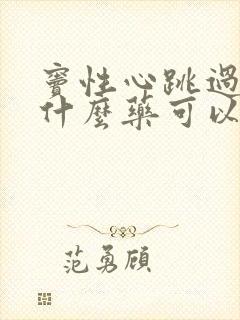 窦性心跳過
什麼藥可以
范勇顧